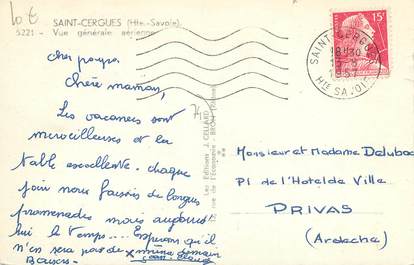 10 €
SAINT-CERGUES (Hte-Savoie)
5221 - Vue générale aérienne
cher papa,
chère maman,
Les vacances sont
merveilleuses et la
table excellente. chaque
jour nous faisons de longues
promenades mais aujourd'
hui le temps.... Espérons qu'il
n'en sera pas de même demain
Baisers
Les Editions J. CELLARD
rue de l'Economie - BRON (Rhône)
SAINT-CERGUES
18H30
Hte SAVOIE
15F
Monsieur et Madame Delubac
Pl de l'Hotel de Ville
PRIVAS
(Ardèche)